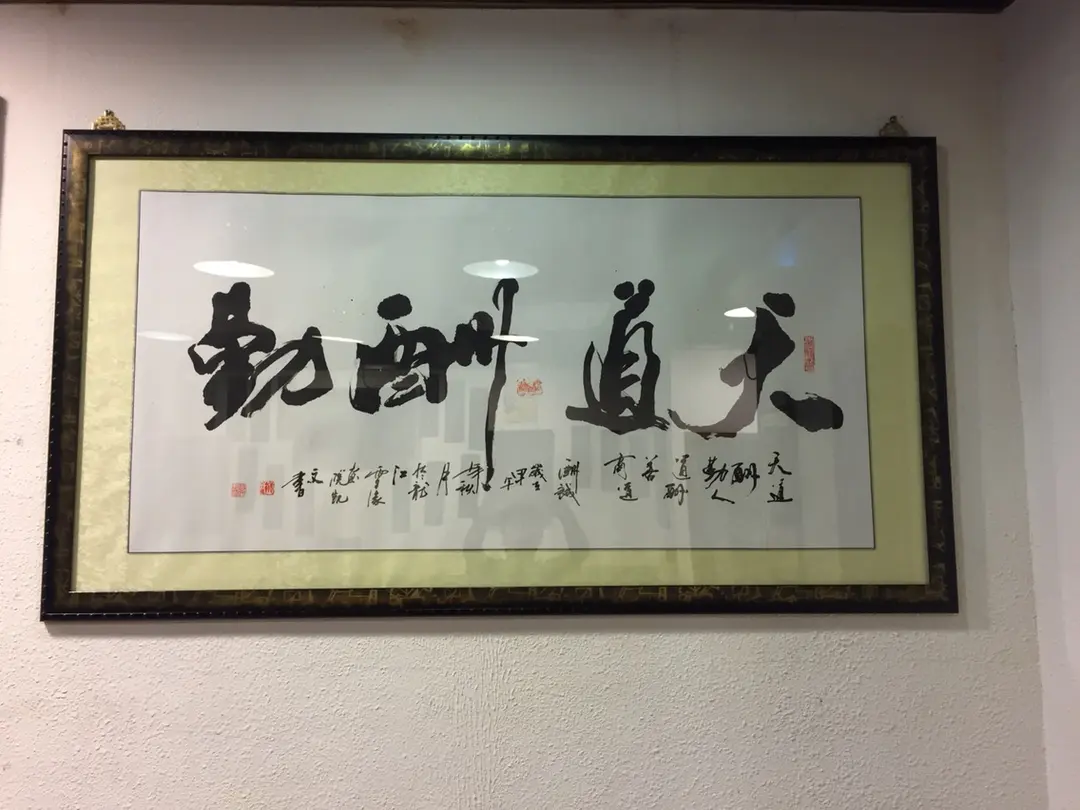 天道酬勤
天道
酬
勤人
道酬
善
商道
酬誠
歲在
甲午
年秋
月
於龍
江
書